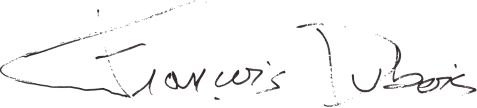 François Dubois